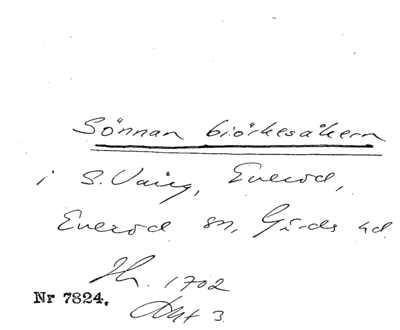 Sönnan biörkesåkern
i S. Vång, Everöd,
Everöd sn, Gärds hd.
Hr. 1702
Nr 7824. Akt 3.